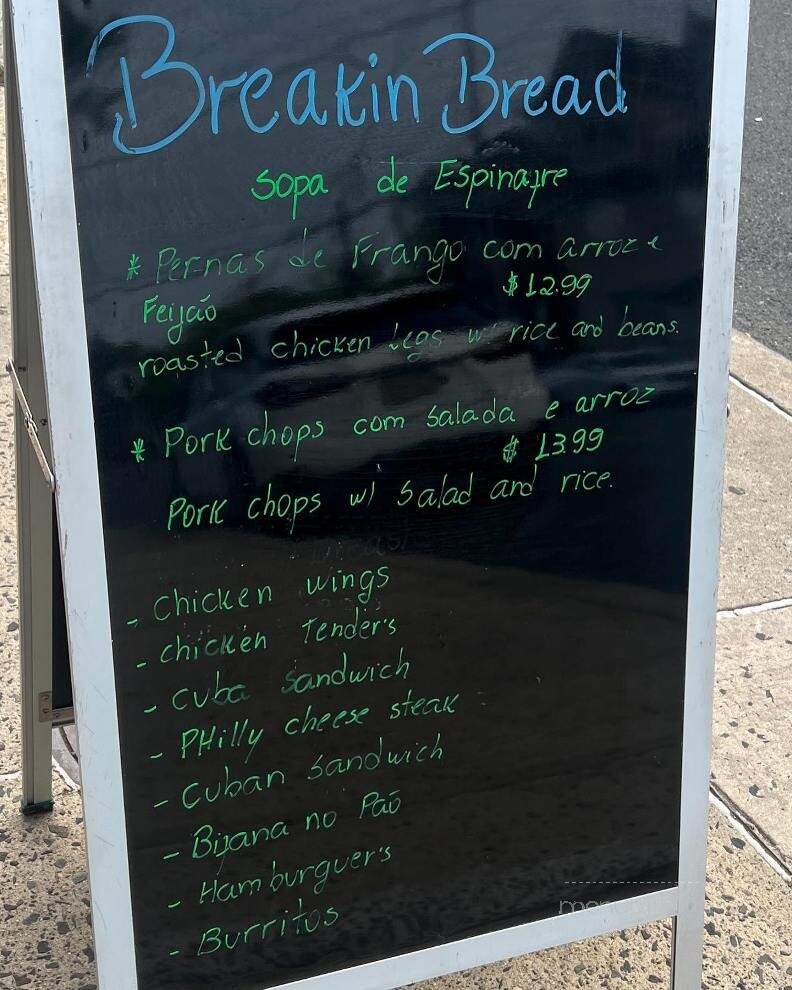 Breakin Bread
Sopa de Espinafre
* Pernas de Frango com arroz e
Feijão $12.99
roasted chicken Legs w/ rice and beans.
* Pork chops com Salada e arroz
$ 13.99
Pork chops w/ Salad and rice.
- Chicken wings
- chicken Tender's
- Cuba Sandwich
- PHilly cheese steak
- Cuban Sandwich
- Bijana no Paõ
- Hamburguer's
- Burritos